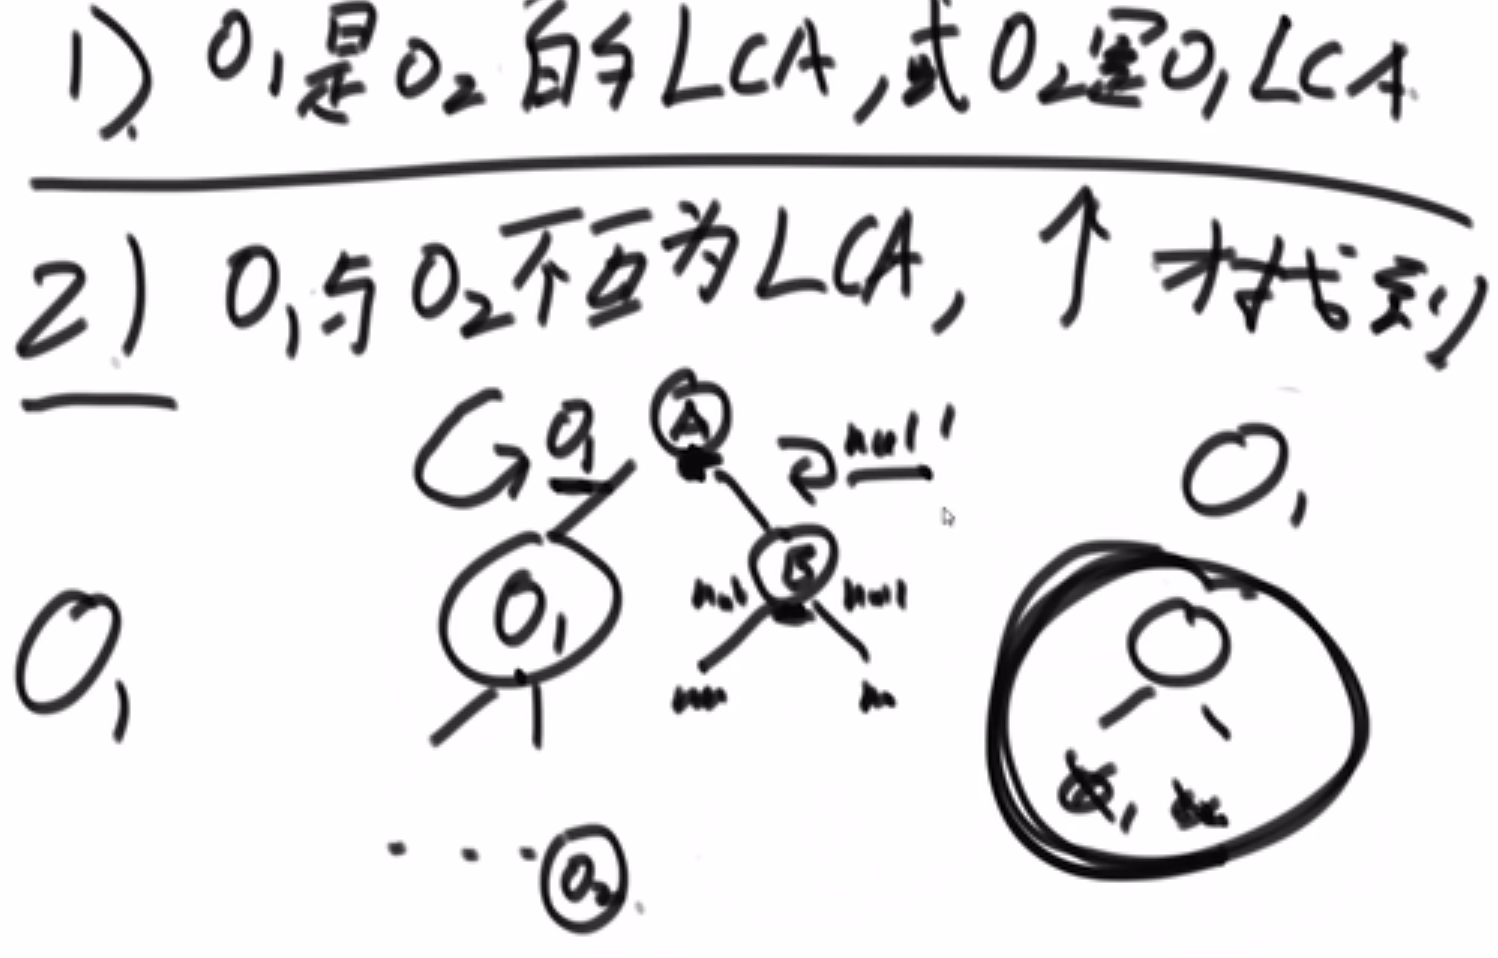 1) O1是O2的LCA,或O2是O1LCA
2) O1与O2不互为LCA, ↑ 才找到
O1 A null O1
O1 B
null null
O1
O2